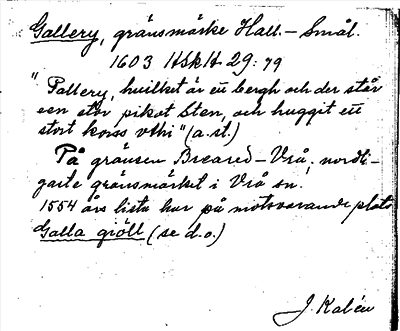 Gallery, gränsmärke Hall.-Smål.
1603 HskH 29:79
"Pallery, huilket är ett bergh och der står
een stor pikot Sten, och huggit ett
stort korss vthi" (a.st.)
På gränsen Breared-Vrå; nordli-
gaste gränsmärket i Vrå sn.
1554 års lista har på motsvarande plats
Galla giöll (se d.o.)
J. Kalén